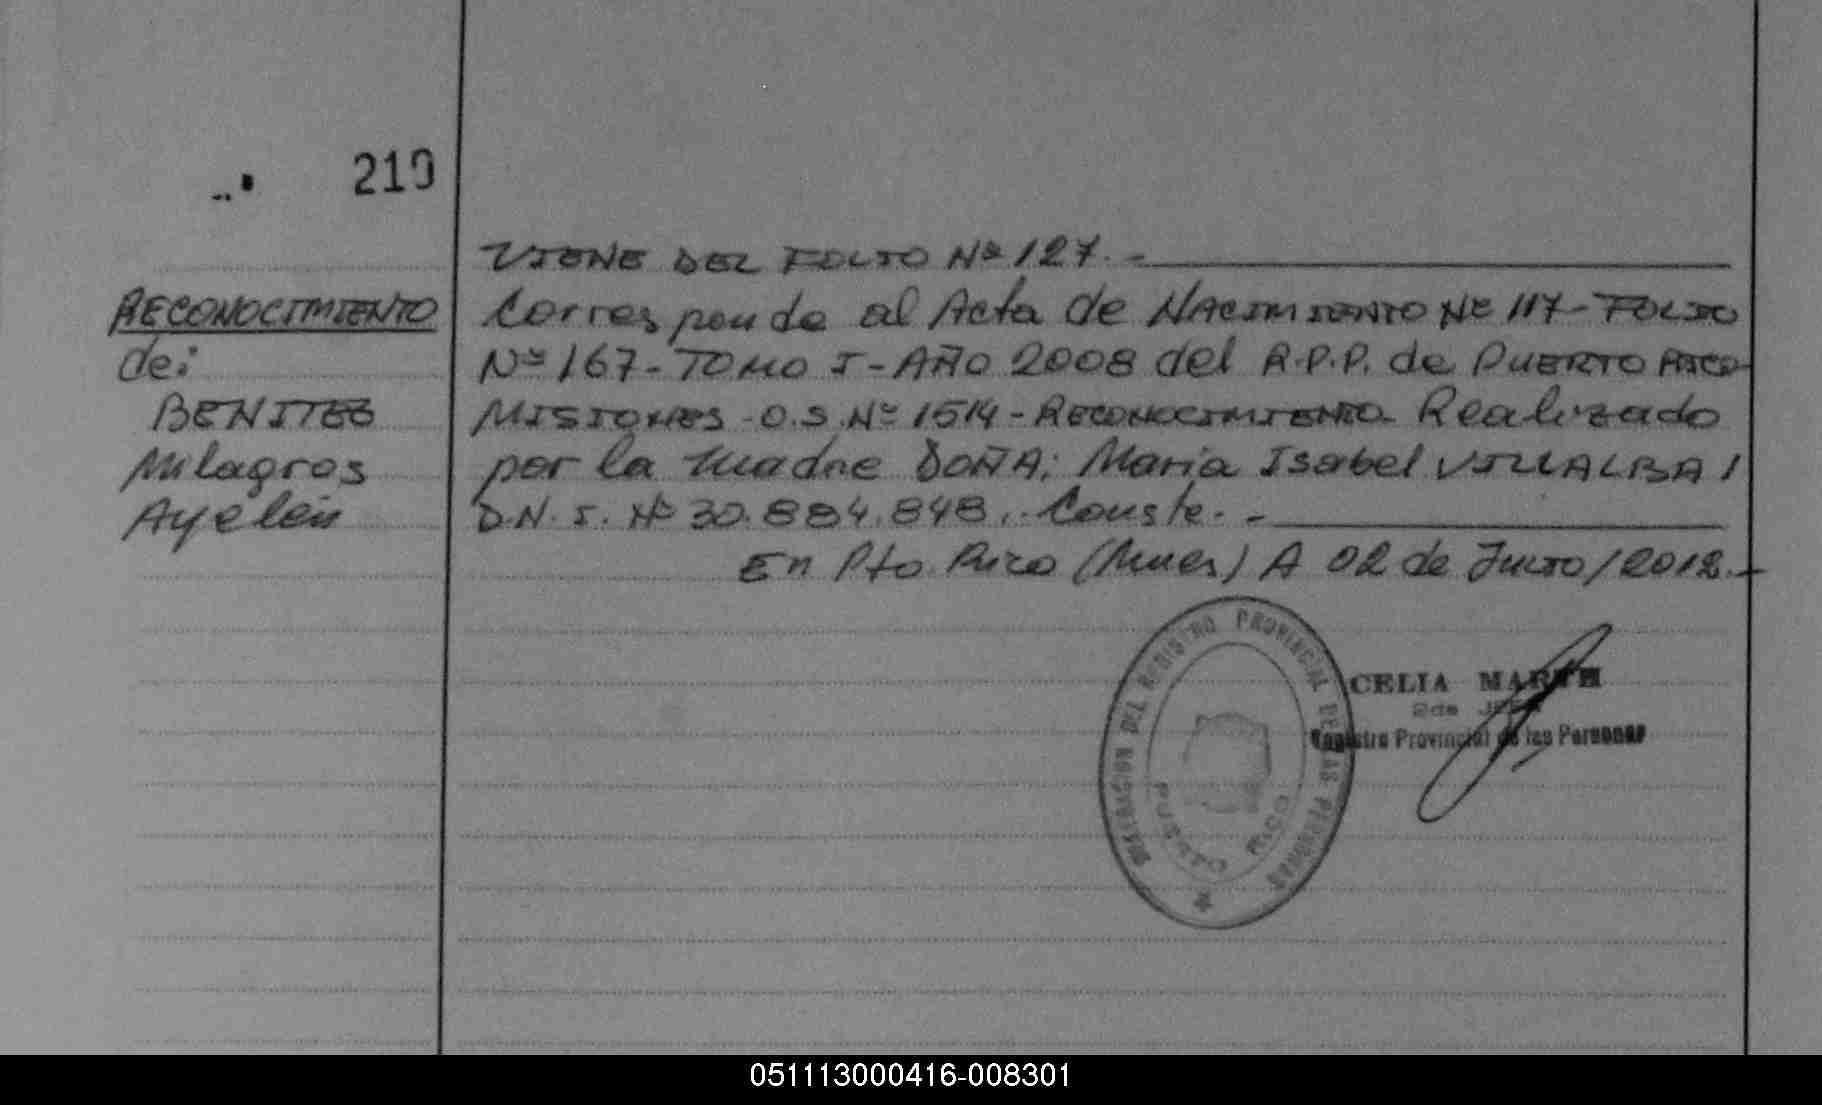 210
VIENE DEL FOLIO Nº 127.-
RECONOCIMIENTO
de:
BENITEZ
Milagros
Ayelén
Corresponde al Acta de NACIMIENTO Nº 117-FOLIO
Nº 167-TOMO I-AÑO 2008 del R.P.P. de PUERTO RICO-
MISIONES-O.S.Nº 1514-RECONOCIMIENTO Realizado
por la Madre DOÑA: Maria Isabel VILLALBA/
D.N.I. Nº 30.884.848.-Conste.-
En Pto. Rico (Mnes) A 02 de JULIO/2012.-
DIRECCION DEL REGISTRO PROVINCIAL DE LAS PERSONAS
PUERTO RICO
CELIA
2da JEFA
Registro Provincial de las Personas
051113000416-008301